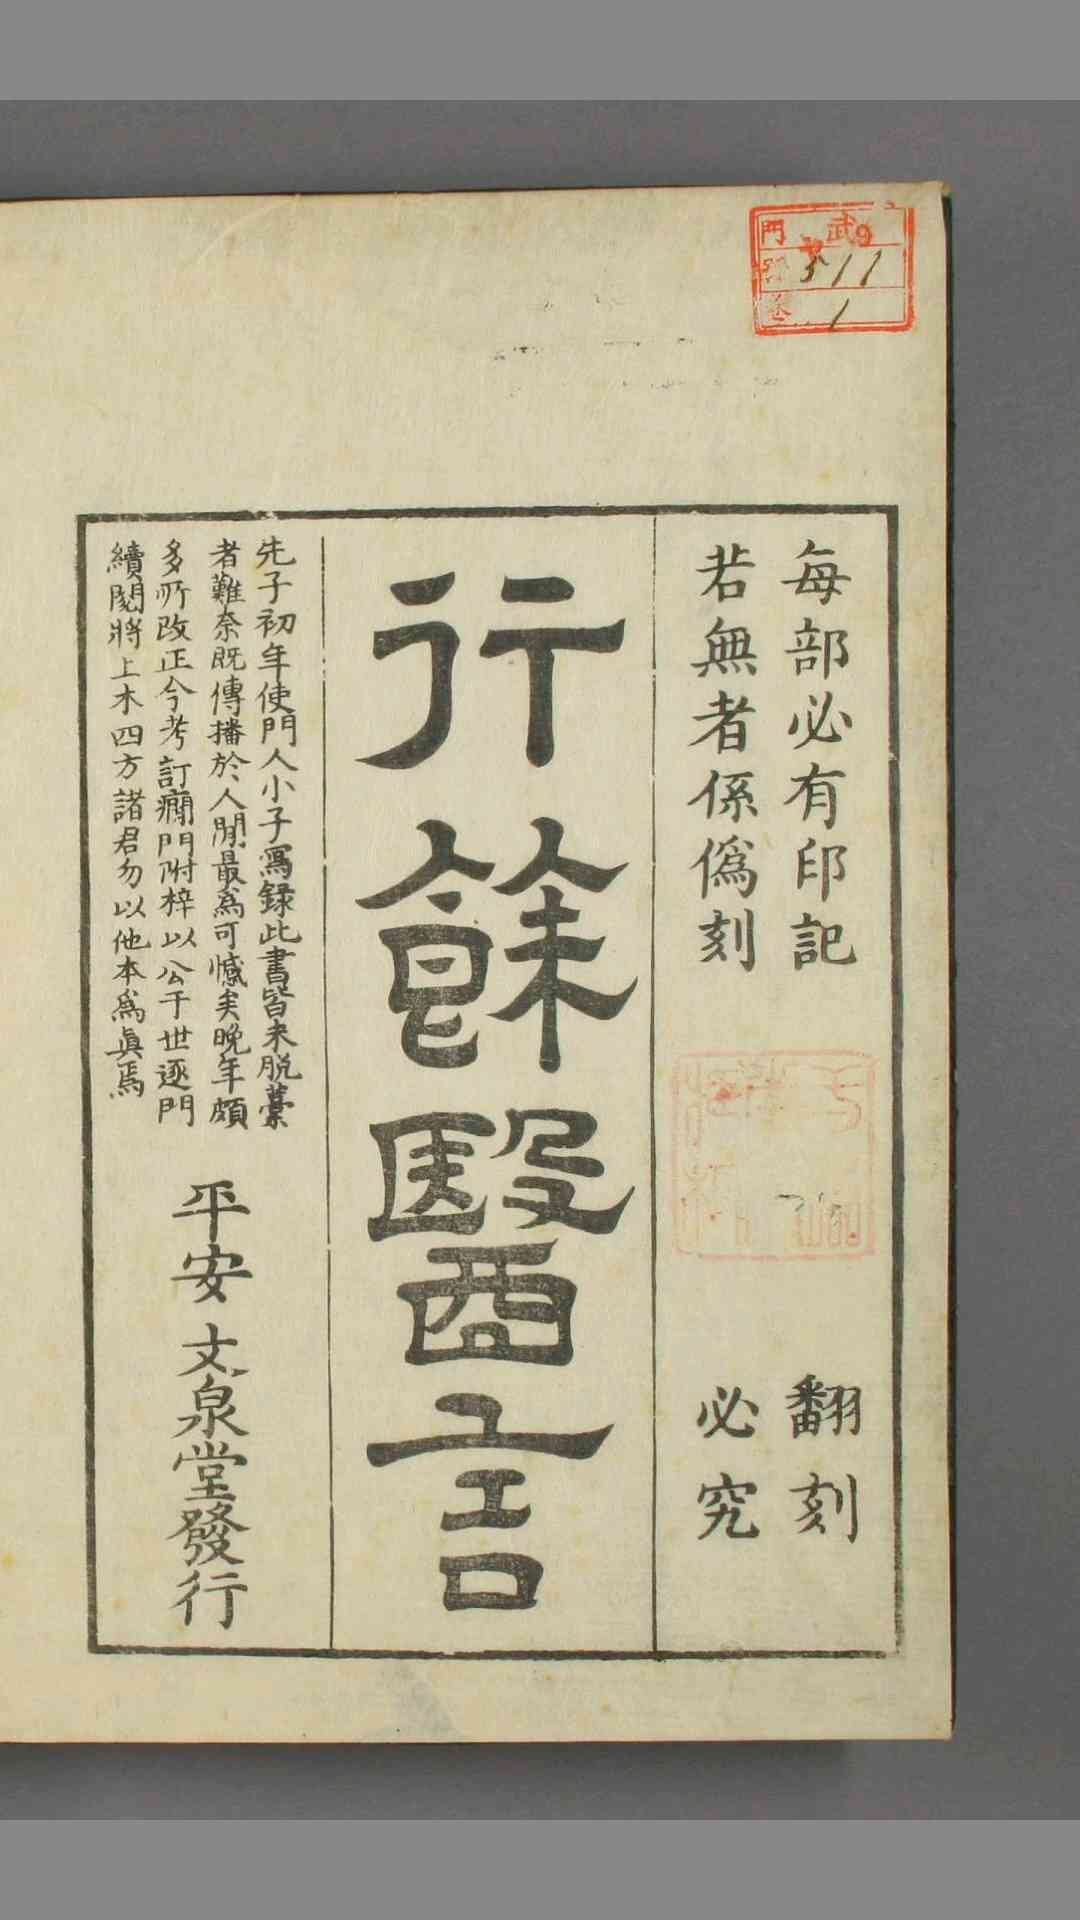 門 武9
號 511
卷 1
每部必有印記
若無者係僞刻
翻刻
必究
行餘醫言
先子初年使門人小子寫錄此書皆未脫藁
者難奈既傳播於人間最為可憾矣晚年頗
多所改正今考訂癇門附梓以公于世逐門
續閱將上木四方諸君勿以他本為眞焉
平安文泉堂發行